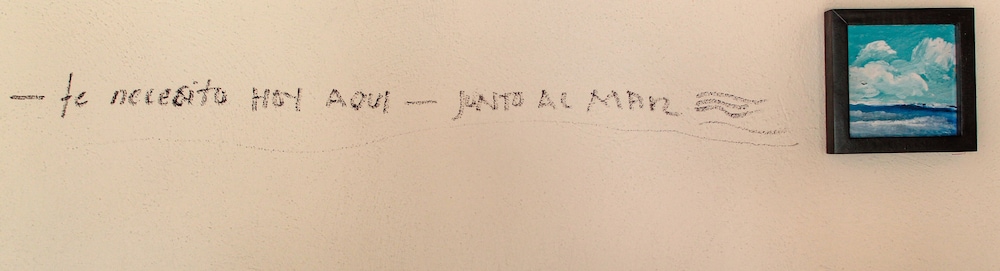 — te necesito HOY AQUI — JUNTO AL MAR